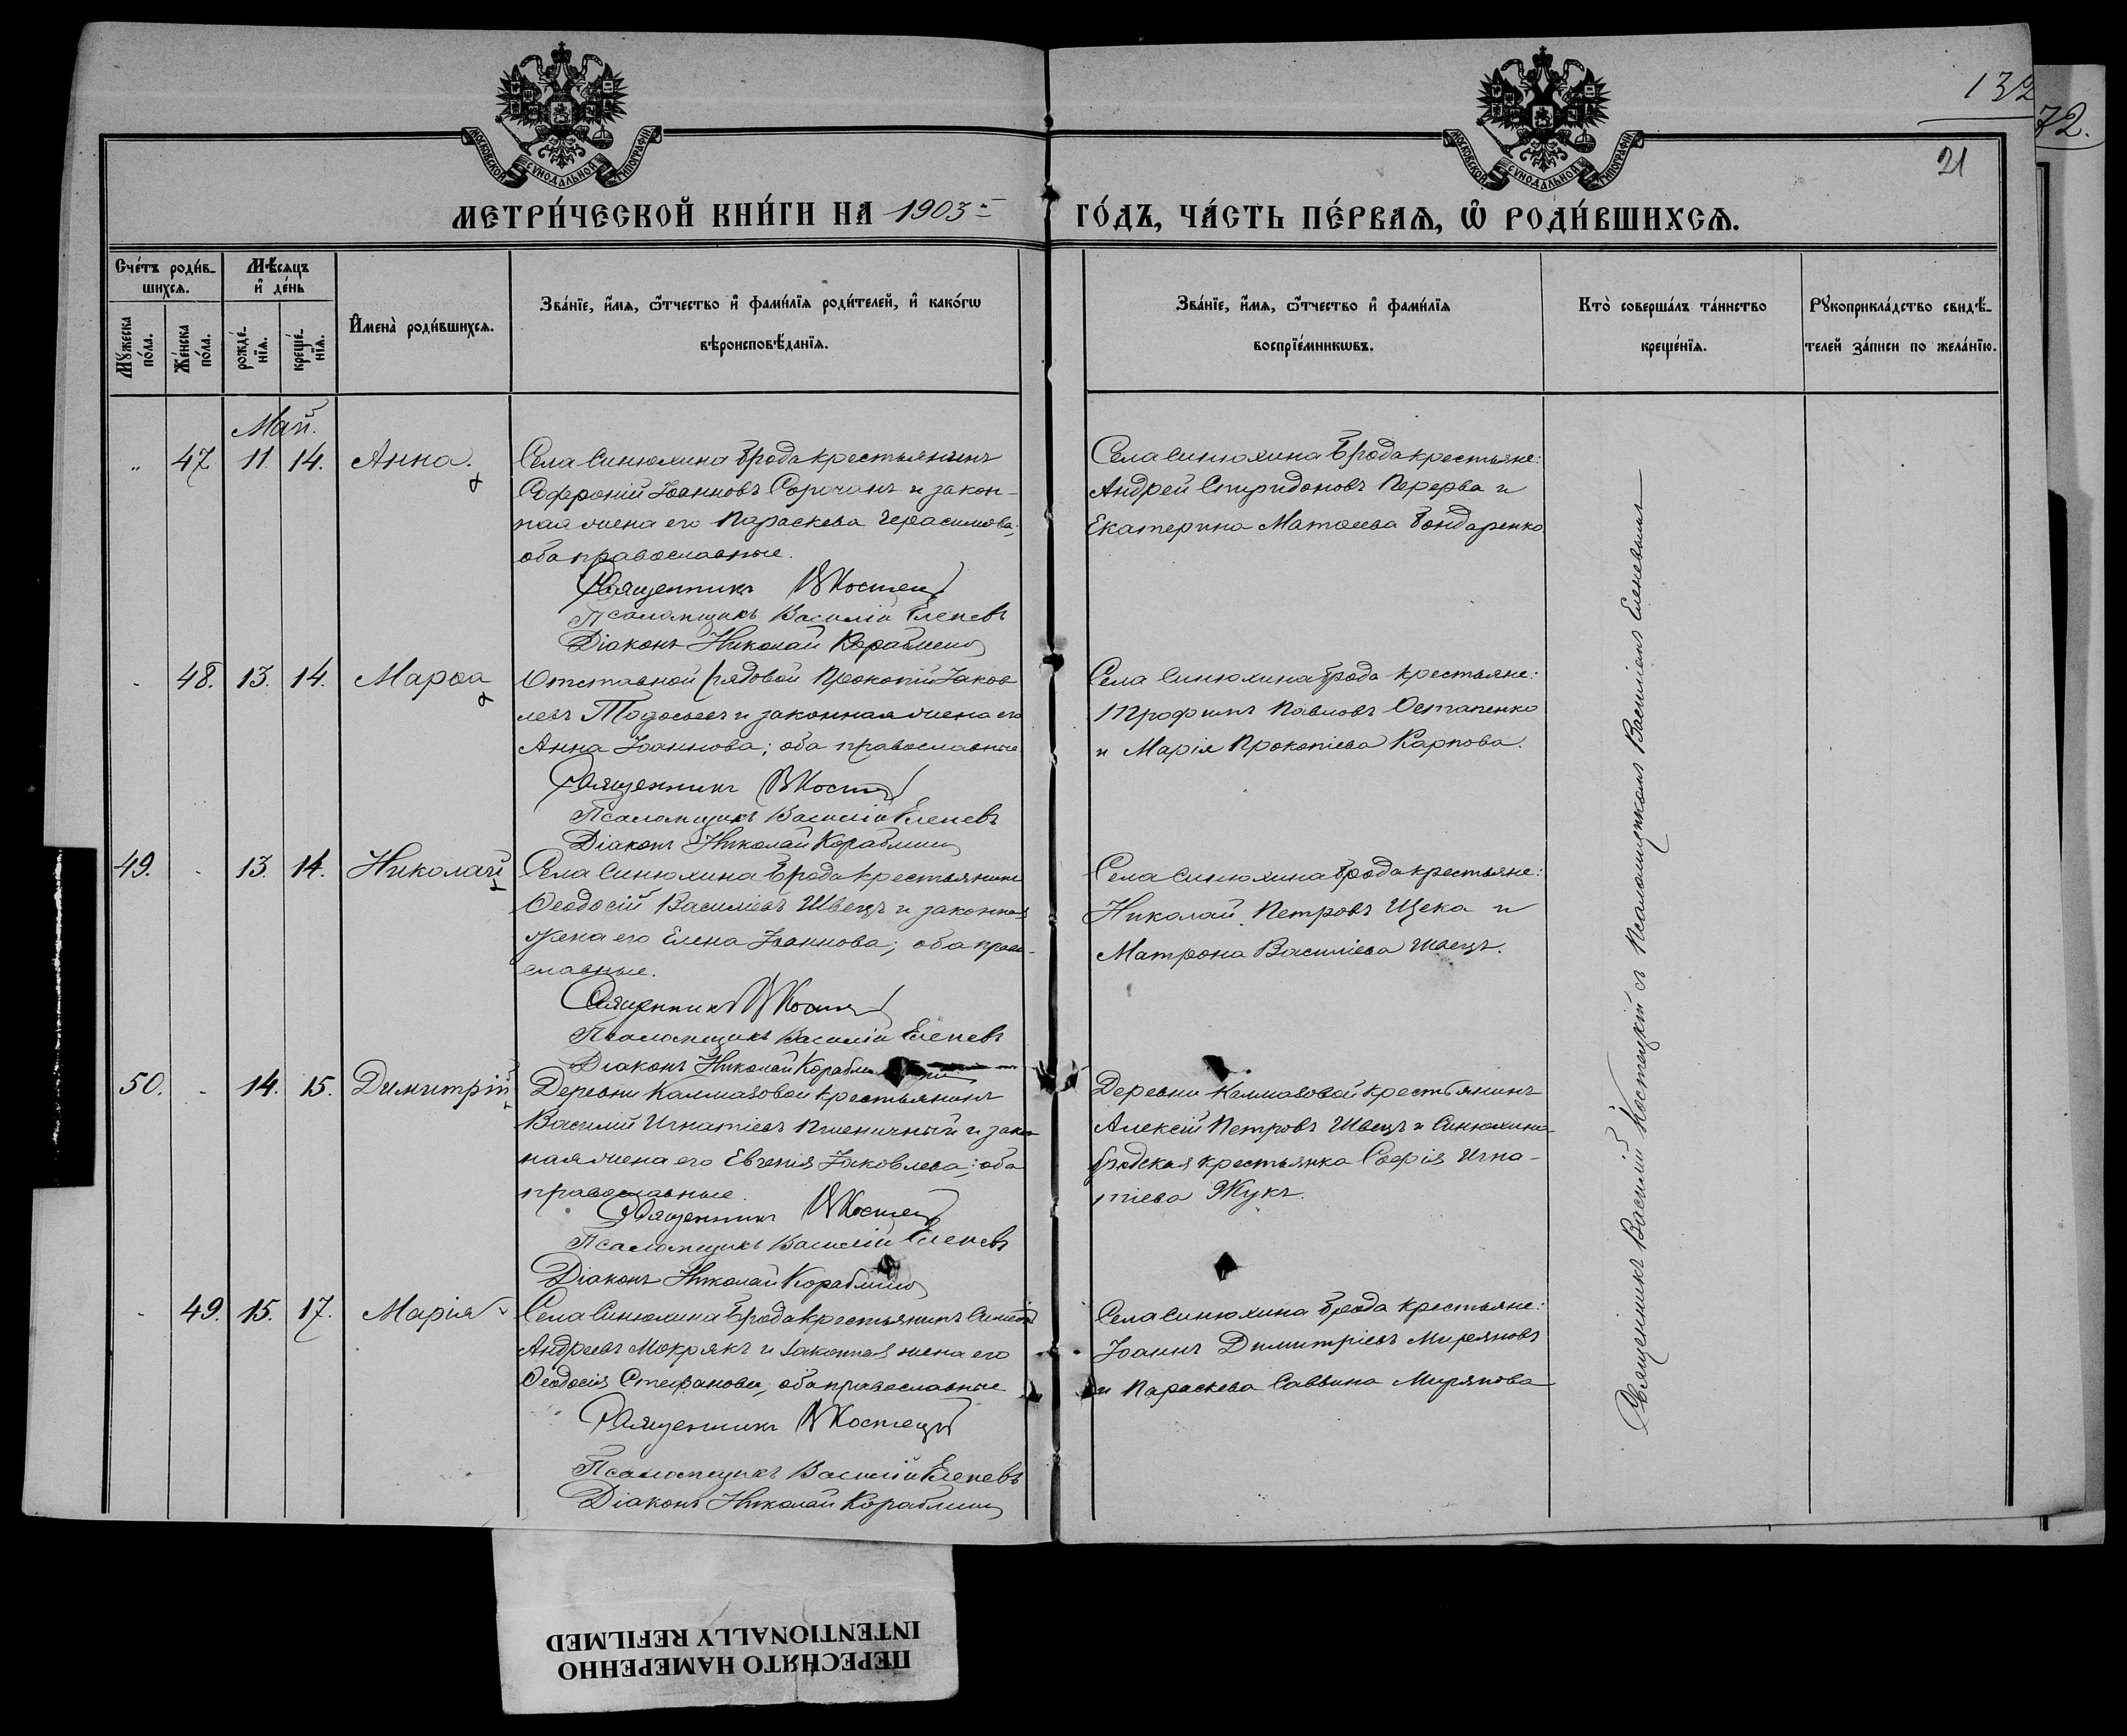 132
72.
21
МОСКОВСКОЙ СѴНОДАЛЬНОЙ ТИПОГРАФІИ
МОСКОВСКОЙ СѴНОДАЛЬНОЙ ТИПОГРАФІИ
МЕТРИ́ЧЕСКОЙ КНИ́ГИ НА 1903 й ГО́ДЪ, ЧА́СТЬ ПЕ́РВАѦ, Ѡ҆ РОДИ́ВШИХСѦ.
Сче́тъ роди́в-
шихсѧ.
Мѣ́сяцъ
и҆ де́нь
Мꙋжеска
по́ла.
Же́нска
по́ла.
рожде́-
нїѧ.
креще́-
нїѧ.
И҆мена̀ роди́вшихсѧ.
Зва́нїе, и҆́мѧ, ѻ҆́тчество и҆ фамѝлїѧ роди́телей, и҆ како́гѡ
вѣроисповѣ́данїѧ.
Зва́нїе, и҆́мѧ, ѻ҆́тчество и҆ фами́лїѧ
воспрїе́мникѡвъ.
Кто̀ соверша́лъ та́инство
креще́нїѧ.
Рꙋкоприкла́дство свидѣ́-
телей за́писи по жела́нїю.
Май.
„ 47 11. 14. Анна.
Села Синюхина Брода крестьянинъ
Софроній Іоанновъ Сорочанъ и закон-
ная жена его Параскева Герасимова;
оба православные.
Священникъ В Костец
Псаломщикъ Василій Еленевъ
Діаконъ Николай Кораблинъ
Села Синюхина Брода крестьяне:
Андрей Спиридоновъ Перерва и
Екатерина Матѳеева Бондаренко
48. 13. 14. Марѳа
Отставной рядовой Прокопій Іаков
левъ и законная жена его
Анна Іоаннова; оба православные
Священникъ В Кост
Псаломщикъ Василій Еленевъ
Діаконъ Николай Кораблинъ
Села Синюхина Брода крестьяне:
Трофимъ Павловъ Остапенко
и Марія Прокопіева Карпова.
49. 13. 14. Николай
Села Синюхина Брода крестьянинъ
Ѳеодосій Василіевъ Швецъ и законная
жена его Елена Іоаннова; оба право-
славные.
Священникъ В Кост
Псаломщикъ Василій Еленевъ
Діаконъ Николай Корабл
Села Синюхина Брода крестьяне:
Николай Петровъ Щека и
Матрона Василіева Швецъ.
50. 14. 15. Димитрій
Деревни Калмазовой крестьянинъ
Василій Игнатіевъ Пшеничный и закон
ная жена его Евгенія Іаковлева; оба
православные.
Священникъ В Костец
Псаломщикъ Василій Еленевъ
Діаконъ Николай Кораблинъ
Деревни Калмазовой крестьянинъ
Алексій Петровъ Швецъ и Синюхино-
бродская крестьянка Софія Игна-
тіева Жукъ.
49. 15. 17. Марія
Села Синюхина Брода крестьянинъ Симеонъ
Андреевъ Мокрякъ и законная жена его
Ѳеодосія Стефанова, оба православные
Священникъ В Костецкій
Псаломщикъ Василій Еленевъ
Діаконъ Николай Кораблинъ
Села Синюхина Брода крестьяне:
Іоаннъ Димитріевъ Миряновъ
и Параскева Саввина Мирянова
Священникъ Василій Костецкій съ Псаломщикомъ Василіемъ Еленевымъ
ПЕРЕСНЯТО НАМЕРЕННО
INTENTIONALLY REFILMED